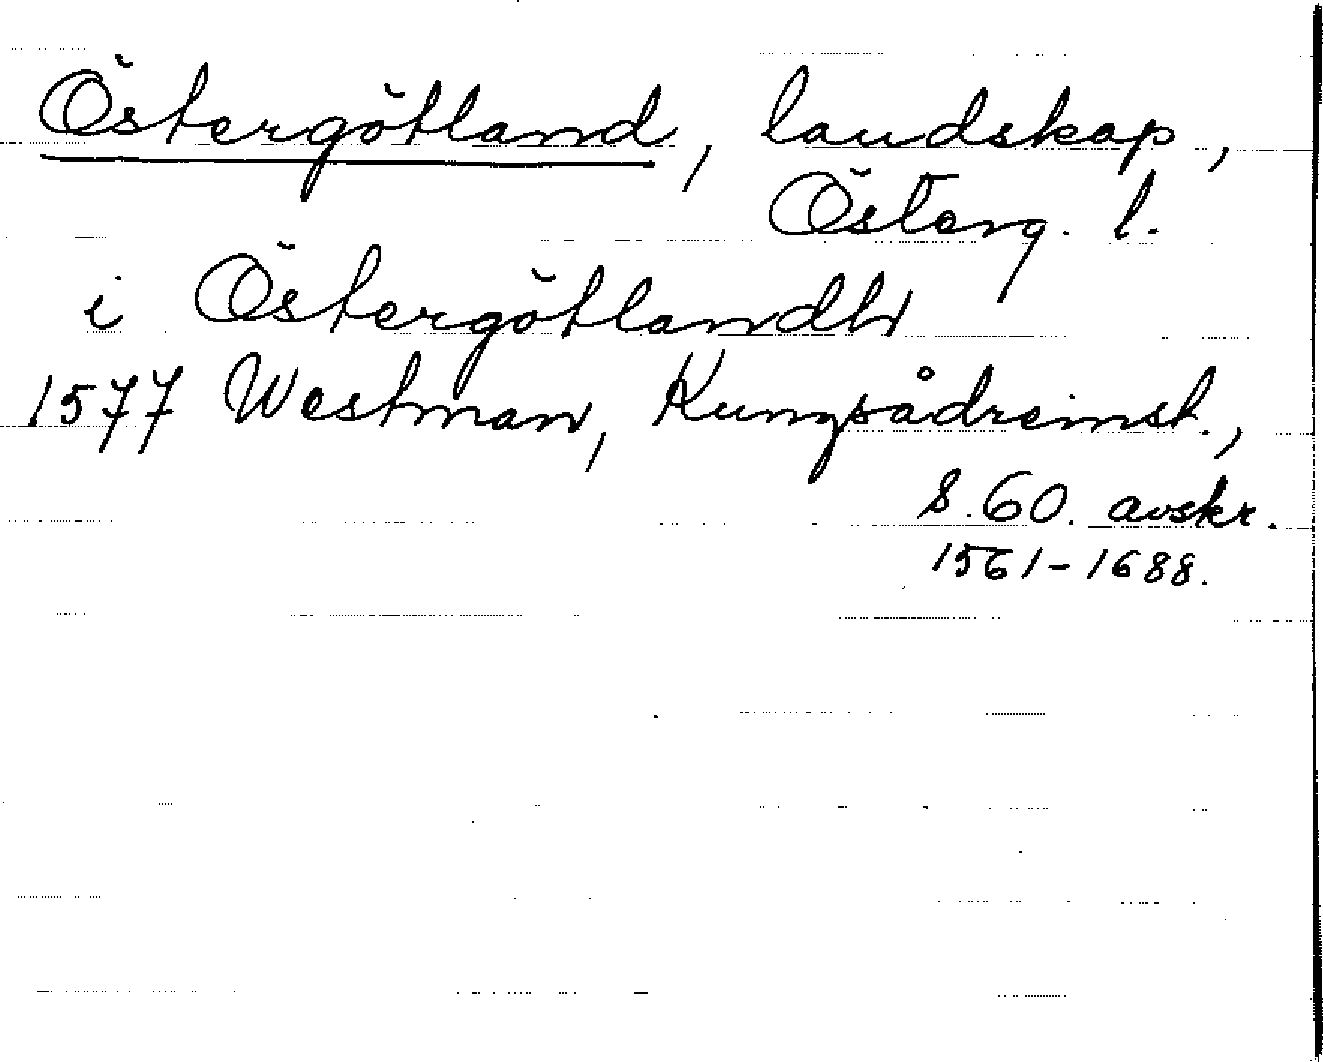 Östergötland, landskap,
Österg. l.
i Östergötlandh
1577 Westman, Kungsådreinst.,
s. 60. avskr.
1561-1688.